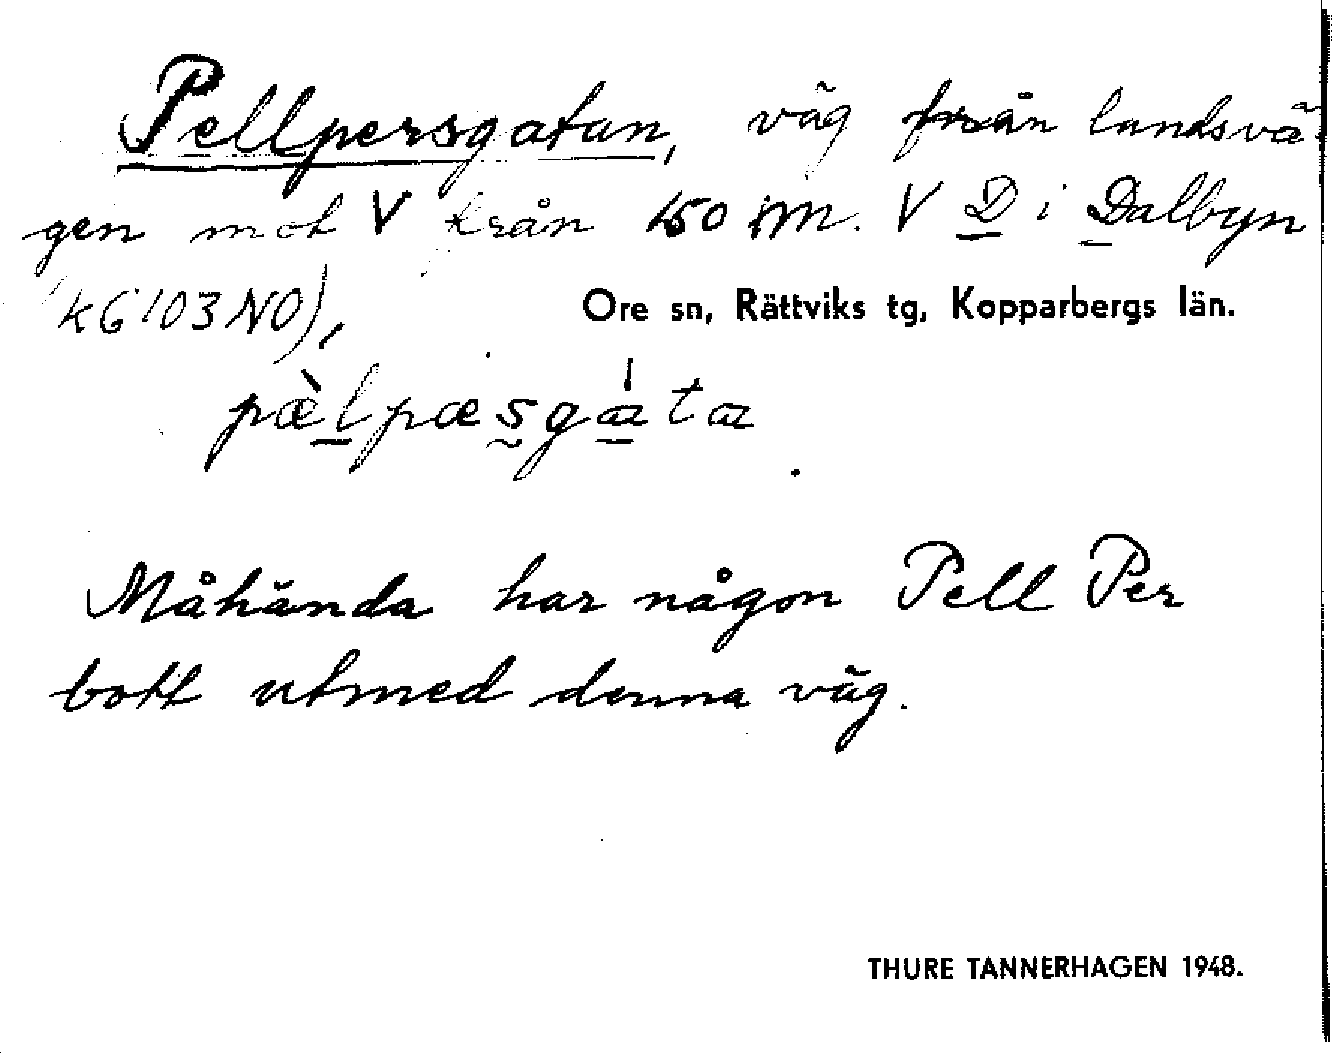 Pellpersgatan, väg från landsvä-
gen mot V från 150 m. V D i Dalbyn
(kG 103 NO),
Ore sn, Rättviks tg, Kopparbergs län.
pæ̀lpæsgáta
Måhända har någon Pell Per
bott utmed denna väg.
THURE TANNERHAGEN 1948.